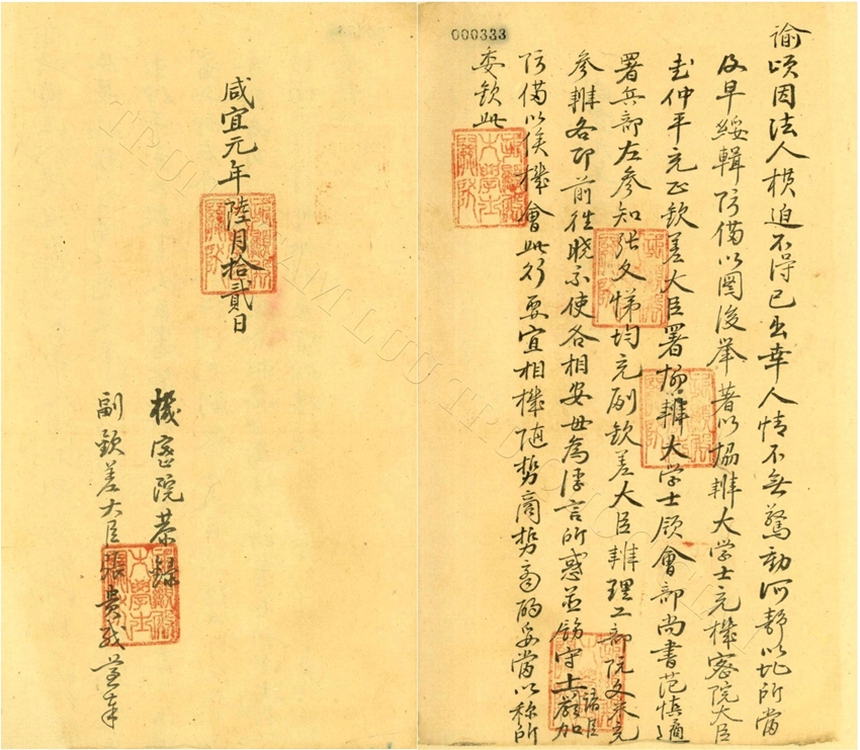 000333
諭頃因法人橫迫不得已出幸人情不無驚動河靜以北所當
及早綏輯防備以圖後舉著以協辦大学士充機密院大臣
武仲平充正欽差大臣署協辦大学士領會部尚書范慎遹
署兵部左參知張文悌均充副欽差大臣辦理工部阮文來充
參辦各即前徃曉示使各相安毋為浮言所惑並飭守土諸臣嚴加
防備以俟機會此行要宜相機隨勢商酌妥當以称所
委欽此
咸宜元年陸月拾貳日
機密院恭錄
副欽差大臣張貴
TRUNG TAM LUU TRU QUOC GIA